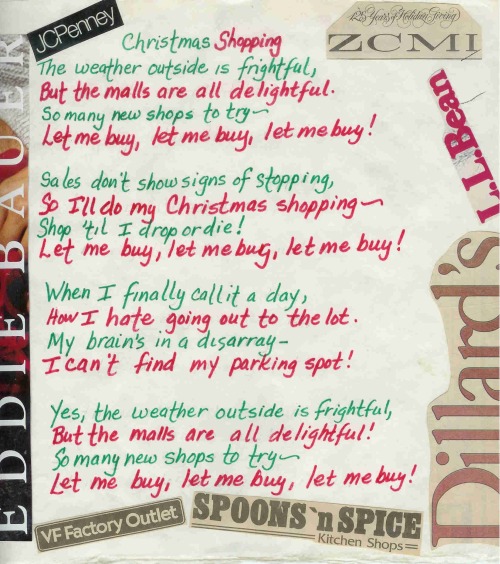 JCPenney
125 Years of Holiday Giving
ZCMI
Christmas Shopping
The weather outside is frightful,
But the malls are all delightful.
So many new shops to try~
Let me buy, let me buy, let me buy!
L.L.Bean
Sales don't show signs of stopping,
So I'll do my Christmas shopping~
Shop 'til I drop or die!
Let me buy, let me buy, let me buy!
EDDIE BAUER
Dillard's
When I finally call it a day,
How I hate going out to the lot.
My brain's in a disarray-
I can't find my parking spot!
Yes, the weather outside is frightful,
But the malls are all delightful!
So many new shops to try~
Let me buy, let me buy, let me buy!
VF Factory Outlet
SPOONS 'n SPICE
Kitchen Shops